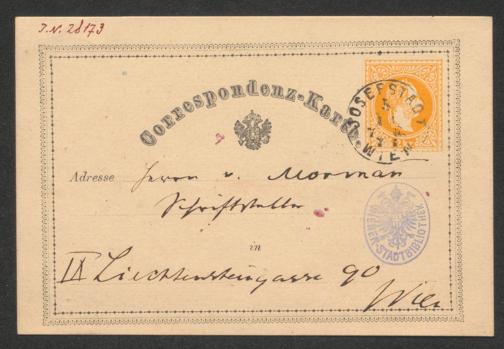 J.N. 28173
Correspondenz-Karte.
JOSEFSTADT
WIEN
Adresse Herrn v. Mosman
Schriftsteller
WIENER STADTBIBLIOTHEK
in
IX Liechtensteingasse 90
Wien